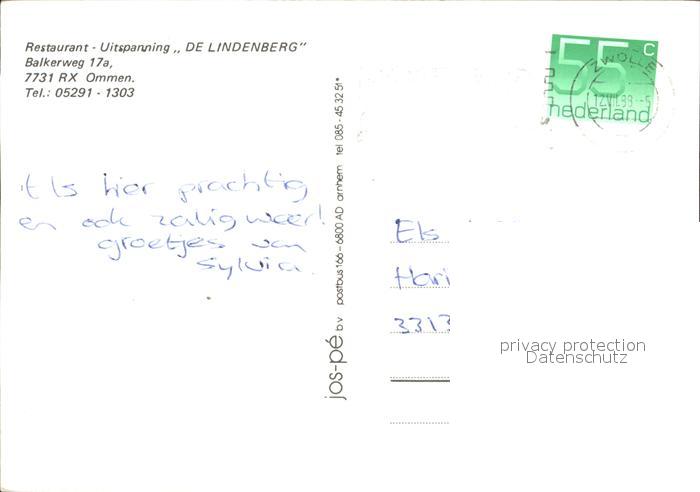 Restaurant - Uitspanning „ DE LINDENBERG"
Balkerweg 17a,
7731 RX Ommen.
Tel.: 05291 - 1303
't Is hier prachtig
en ook zalig weer!
groetjes van
Sylvia.
jos-pé bv postbus 166 - 6800 AD arnhem tel 085 - 45 32 51*
55 c
nederland
ZWOLLE
Els
Hari
3313
privacy protection
Datenschutz